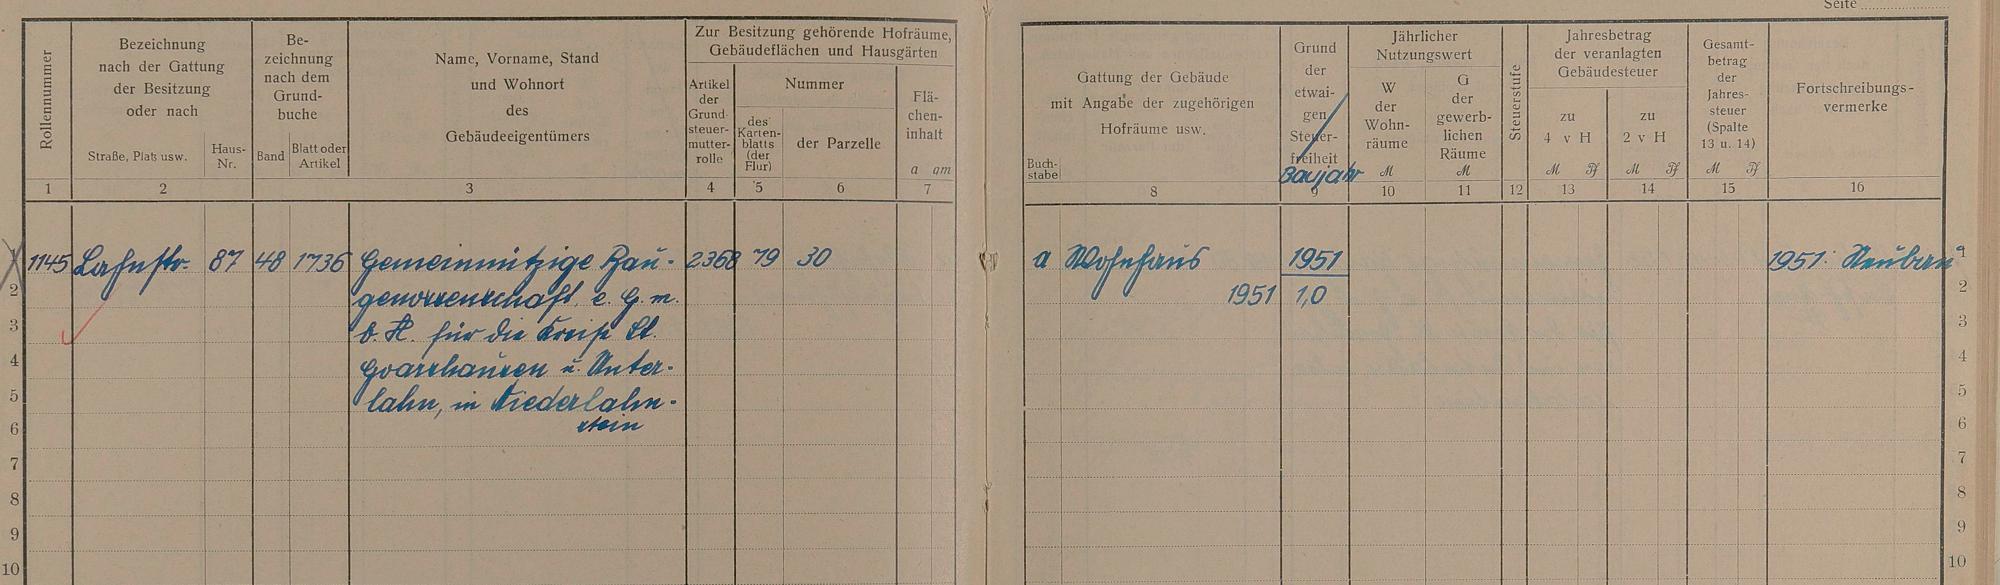 Seite
Rollennummer
Bezeichnung
nach der Gattung
der Besitzung
oder nach
Straße, Platz usw.
Haus-
Nr.
Be-
zeichnung
nach dem
Grund-
buche
Band
Blatt oder
Artikel
Name, Vorname, Stand
und Wohnort
des
Gebäudeeigentümers
Zur Besitzung gehörende Hofräume,
Gebäudeflächen und Hausgärten
Artikel
der
Grund-
steuer-
mutter-
rolle
Nummer
des
Karten-
blatts
(der
Flur)
der Parzelle
Flä-
chen-
inhalt
a qm
1 2 3 4 5 6 7
1145 Lahnstr. 87 48 1736 Gemeinnützige Bau- 2368 79 30
genossenschaft e. G. m.
b. H. für die Kreise St.
Goarshausen u. Unter-
lahn, in Niederlahn-
stein
2
3
4
5
6
7
8
9
10
Buch-
stabe
Gattung der Gebäude
mit Angabe der zugehörigen
Hofräume usw.
Grund
der
etwai-
gen
Steuer-
freiheit
Baujahr
Jährlicher
Nutzungswert
W
der
Wohn-
räume
M
G
der
gewerb-
lichen
Räume
M
Steuerstufe
Jahresbetrag
der veranlagten
Gebäudesteuer
zu
4 v H
M Pf
zu
2 v H
M Pf
Gesamt-
betrag
der
Jahres-
steuer
(Spalte
13 u. 14)
M Pf
Fortschreibungs-
vermerke
8 9 10 11 12 13 14 15 16
a Wohnhaus 1951 1951: Neubau 1
1951 1,0 2
3
4
5
6
7
8
9
10